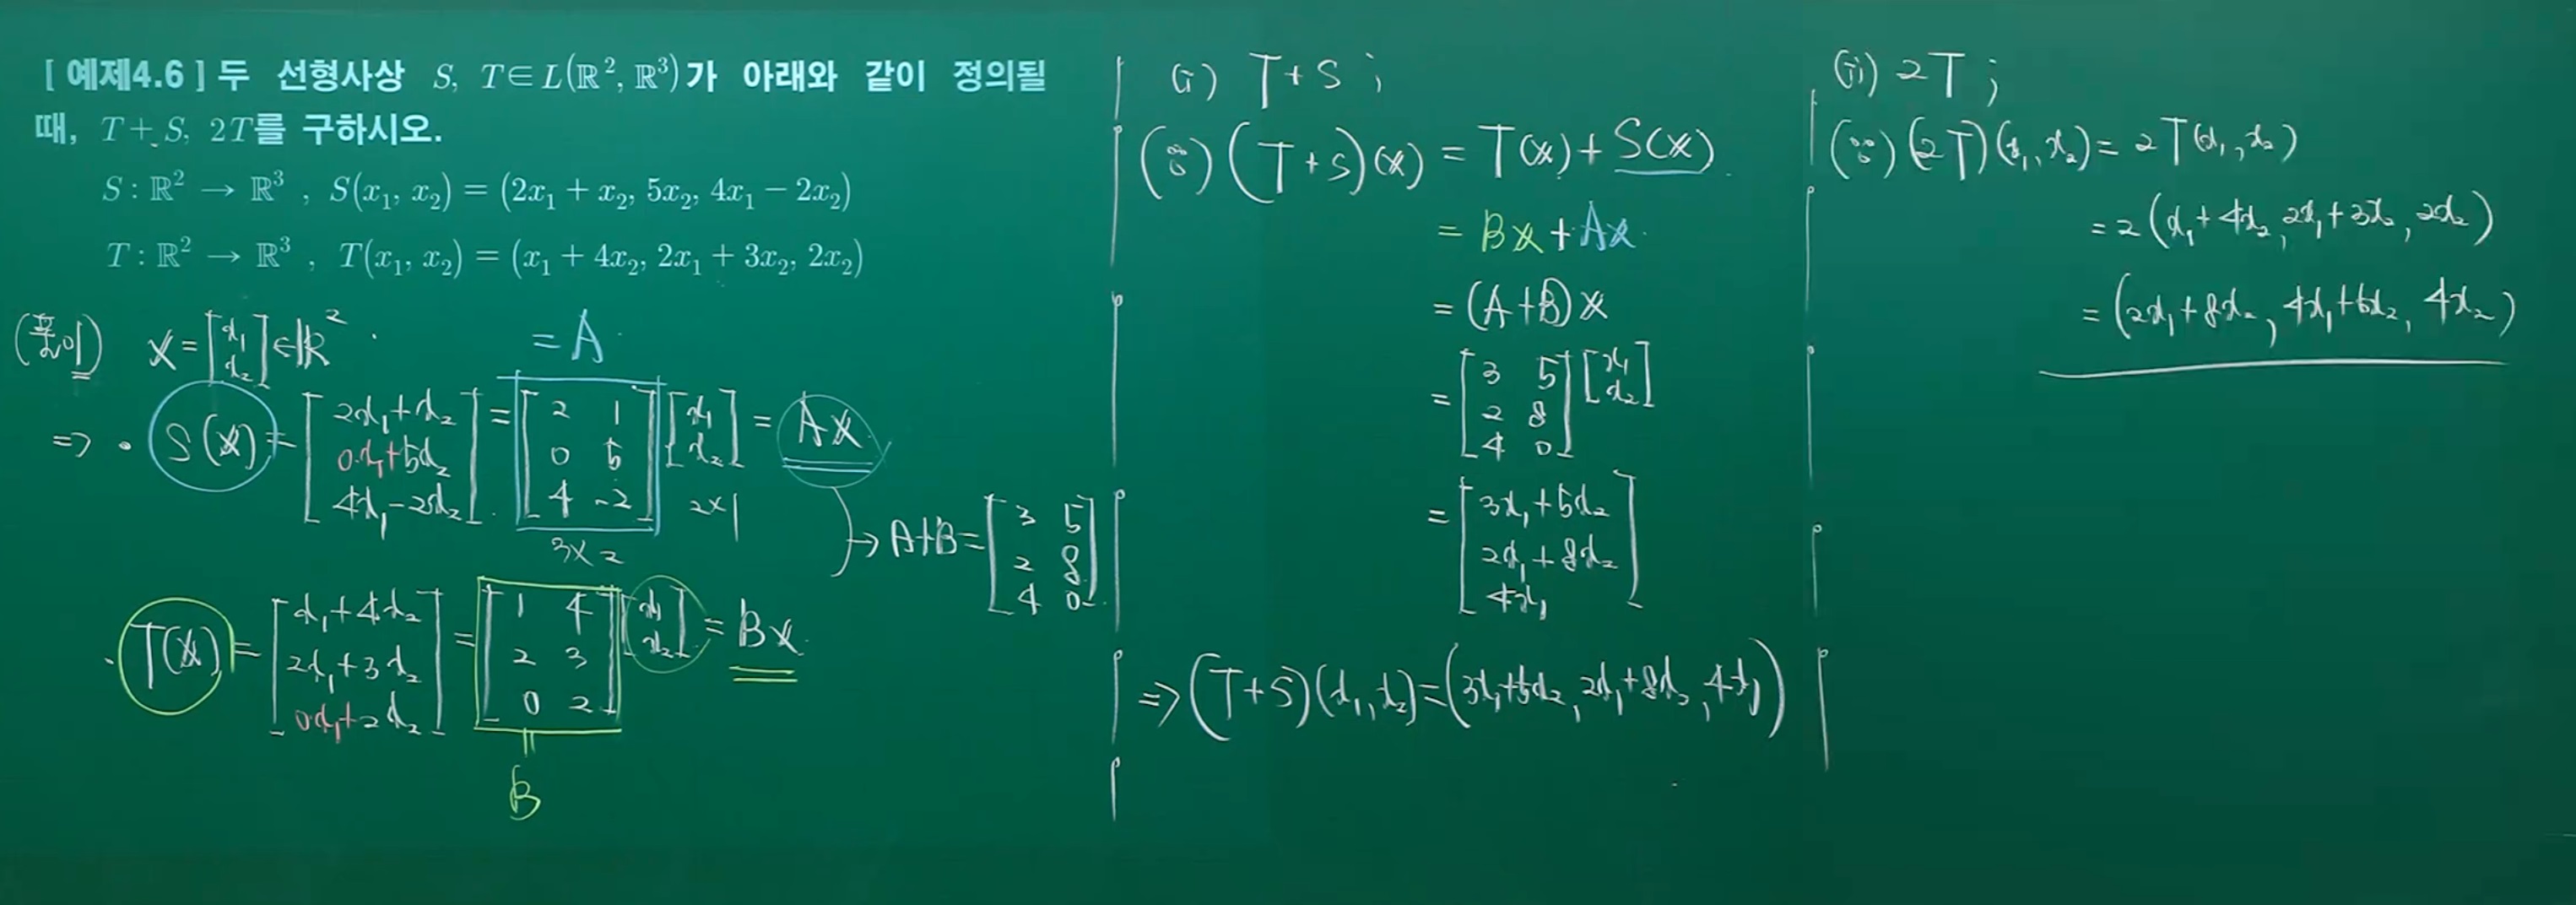 [ 예제4.6 ] 두 선형사상 S, T∈L(ℝ², ℝ³)가 아래와 같이 정의될
때, T+S, 2T를 구하시오.
S : ℝ² → ℝ³ , S(x₁, x₂) = (2x₁ + x₂, 5x₂, 4x₁ − 2x₂)
T : ℝ² → ℝ³ , T(x₁, x₂) = (x₁ + 4x₂, 2x₁ + 3x₂, 2x₂)
(풀이) x = [x₁ x₂] ∈ ℝ² .
= A
⇒ · S(x) = [2x₁+x₂ 0x₁+5x₂ 4x₁−2x₂] = [2 1 0 5 4 -2] [x₁ x₂] = Ax
3×2 2×1
· T(x) = [x₁+4x₂ 2x₁+3x₂ 0x₁+2x₂] = [1 4 2 3 0 2] [x₁ x₂] = Bx
= B
→ A+B = [3 5 2 8 4 0]
(i) T+S ;
(∵) (T+S)(x) = T(x) + S(x)
= Bx + Ax
= (A+B)x
= [3 5 2 8 4 0] [x₁ x₂]
= [3x₁+5x₂ 2x₁+8x₂ 4x₁]
⇒ (T+S)(x₁, x₂) = (3x₁+5x₂, 2x₁+8x₂, 4x₁)
(ii) 2T ;
(∵) (2T)(x₁, x₂) = 2T(x₁, x₂)
= 2(x₁+4x₂, 2x₁+3x₂, 2x₂)
= (2x₁+8x₂, 4x₁+6x₂, 4x₂)